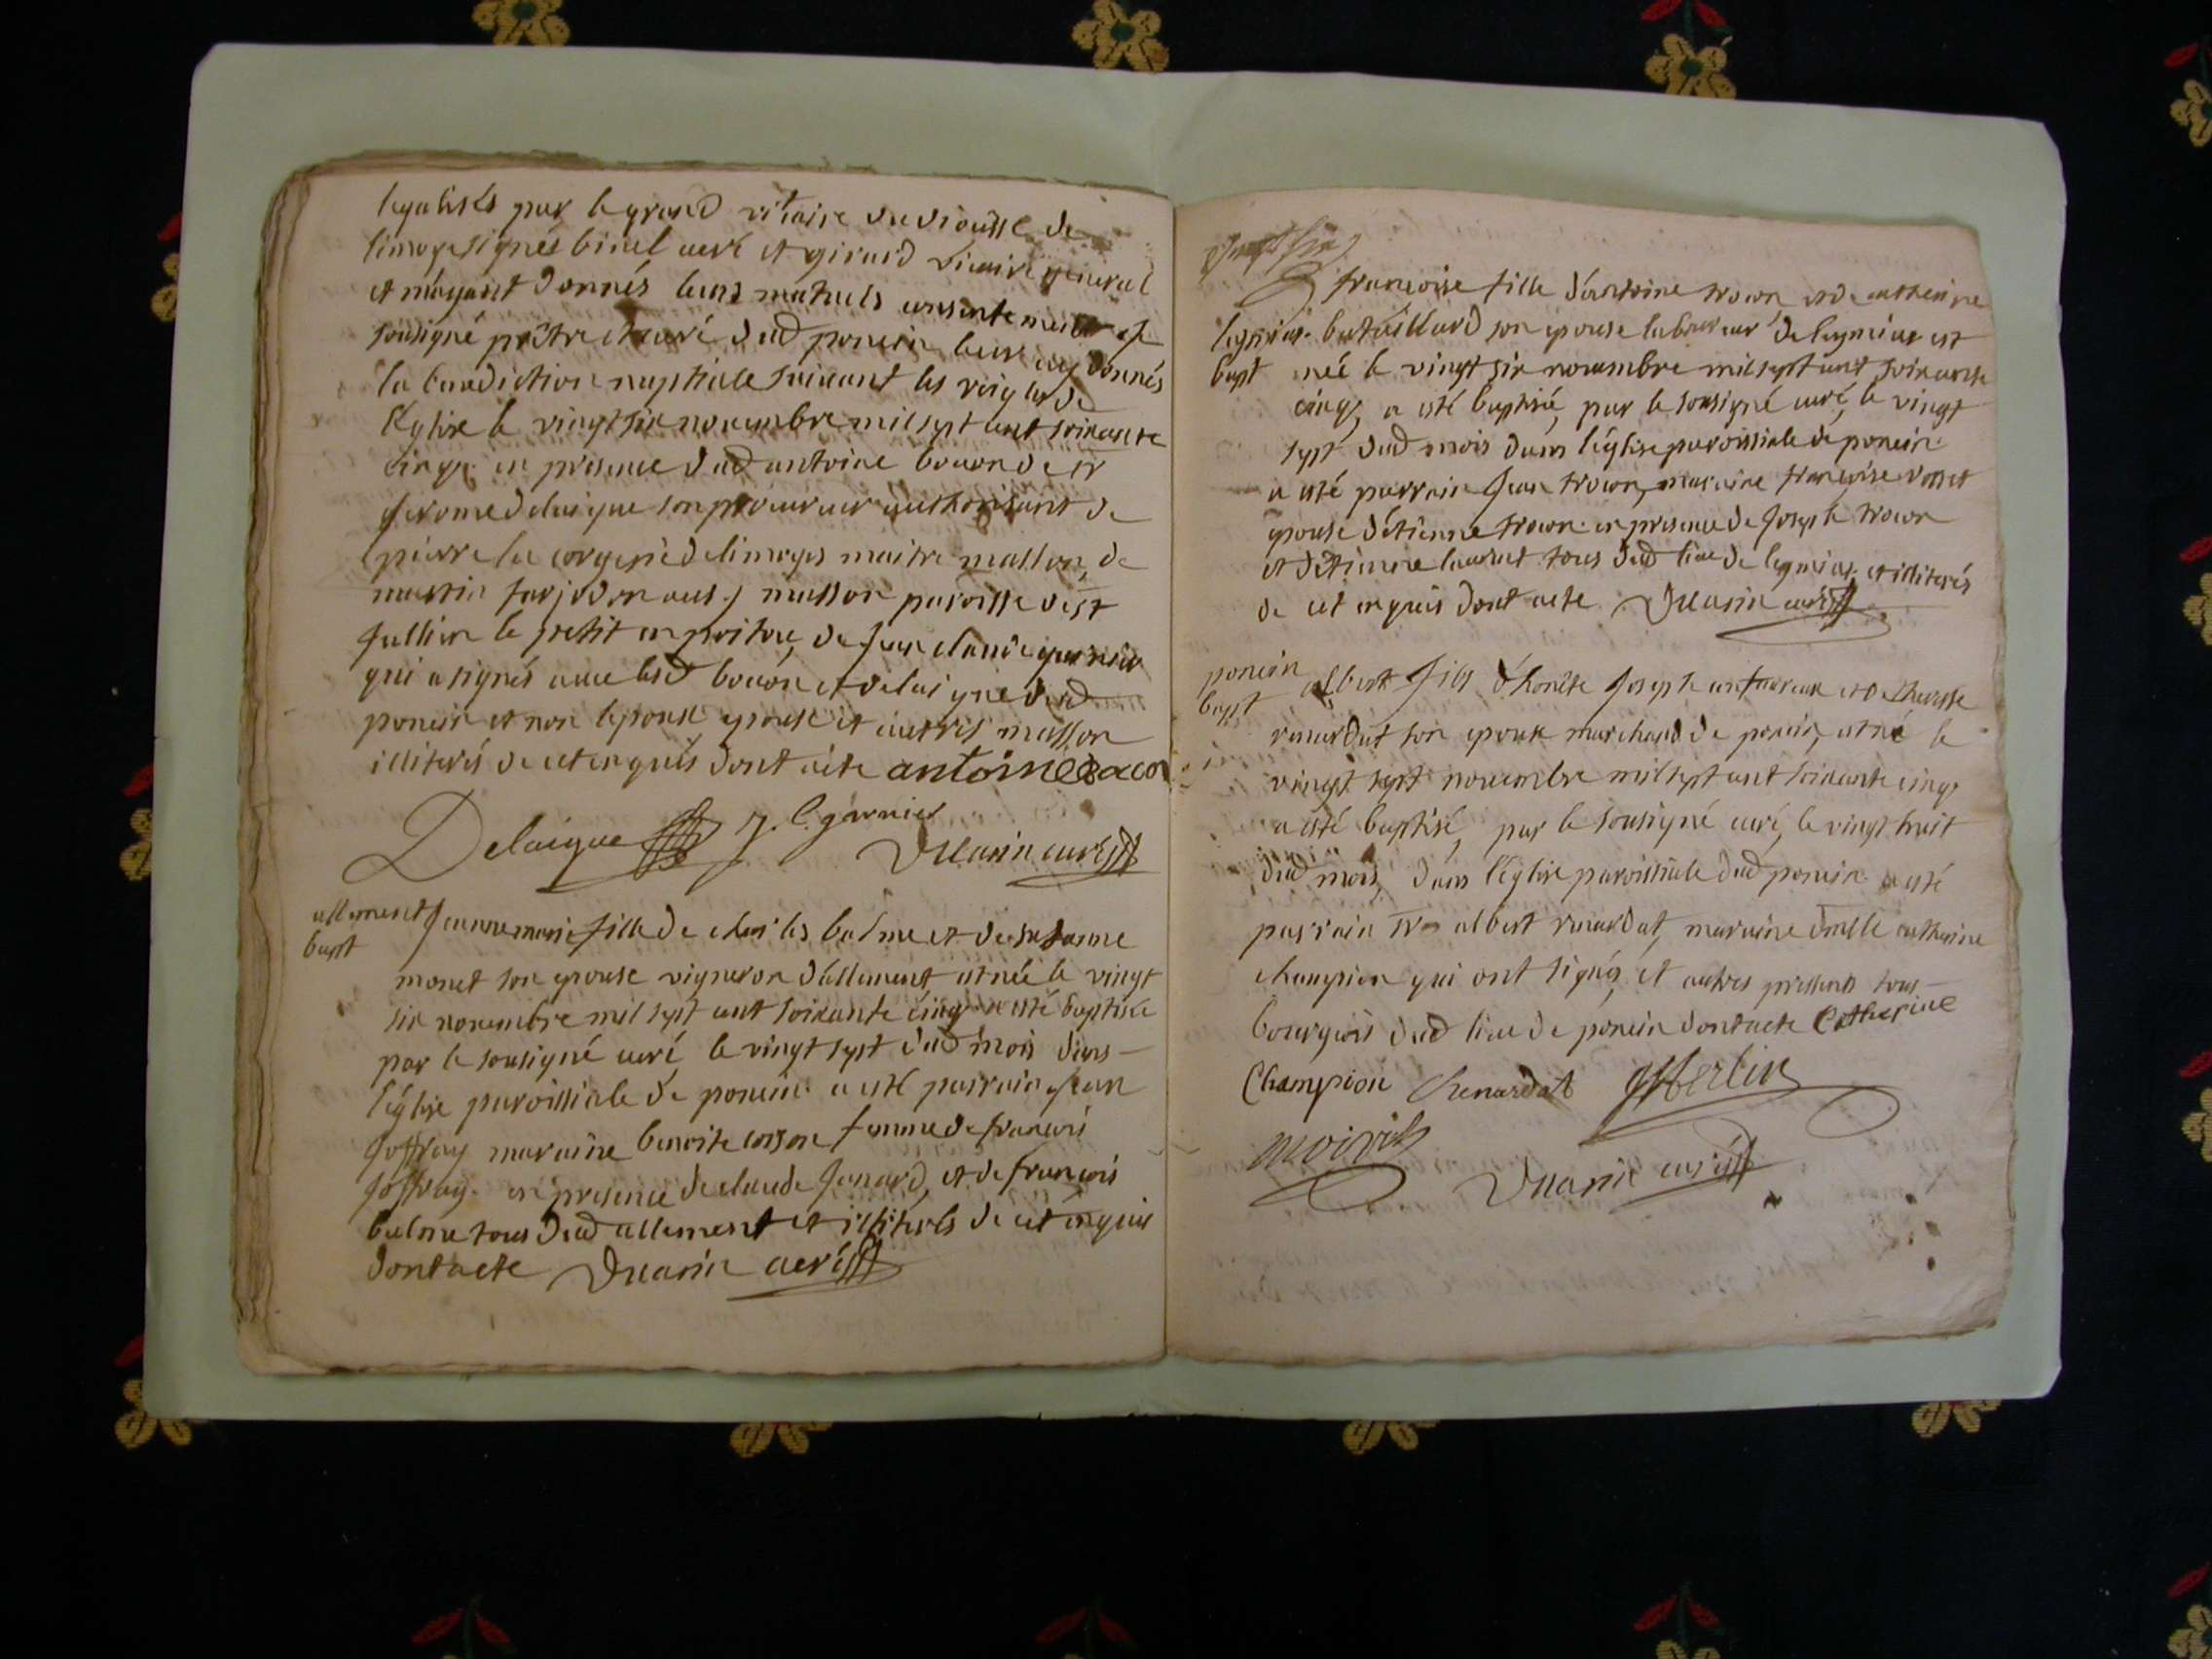 legalisés par le grand vicaire du diousse de
limoge signés binel curé et girard vicaire general
et m'ayant donnés leurs mutuels consentements je
sousigné prêtre et curé dud poncin leurs ay donnés
la benediction nuptiale suivant les reigles de
l'églize le vingt six novembre mil sept cent soixante
cinq. en presence dud antoine bouon de sr
jerome delaigue son procureur authorisant de
pierre la de limoges maitre masson, de
martin masson paroisse de st
jullien le petit en poitou, de jean claude garnier
qui a signés avec lesd bouon et delaigne dud
poncin et non l'epouse epouse et autres masson
illiterés de cet enquis dont acte antoine bacon
Delaigue J. C. garnier
Duarin curé
allement jeanne marie fille de charles balme et de susanne
bapt
monet son epouse vigneron d'allement est née le vingt
six novembre mil sept cent soixante cinq a esté baptisée
par le sousigné curé, le vingt sept dud mois dans
l'églize paroissiale de poncin. a esté parrain jean
joffray maraine benoite femme de francois
joffray. en presence de claude janard, et de francois
balme tous dud allement et illiterés de cet enquis
dont acte Duarin curé
francoise fille d'antoine trocon et de catherine
legnieu. bataillard son epouse laboureur de legnieu est
bapt née le vingt six novembre mil sept cent soixante
cinq, a esté baptisée, par le sousigné curé, le vingt
sept dud mois dans l'églize paroissiale de poncin.
a esté parrain jean trocon, maraine francoise rosset
epouse d'étienne trocon. en presence de joseph trocon
et d'étienne tous dud lieu de legnieu. et illiterés
de cet enquis dont acte Duarin curé
poncin albert fils d'honête joseph et de therese
bapt
renardat son epouse marchand de poncin, est né le
vingt sept novembre mil sept cent soixante cinq,
a esté baptisé, par le sousigné curé, le vingt huit
dud mois, dans l'églize paroissiale dud poncin a esté
parrain sr albert renardat, maraine dmlle catherine
champion qui ont signés, et autres presents tous
bourgeois dud lieu de poncin dont acte Catherine
Champion Renardat
Duarin curé